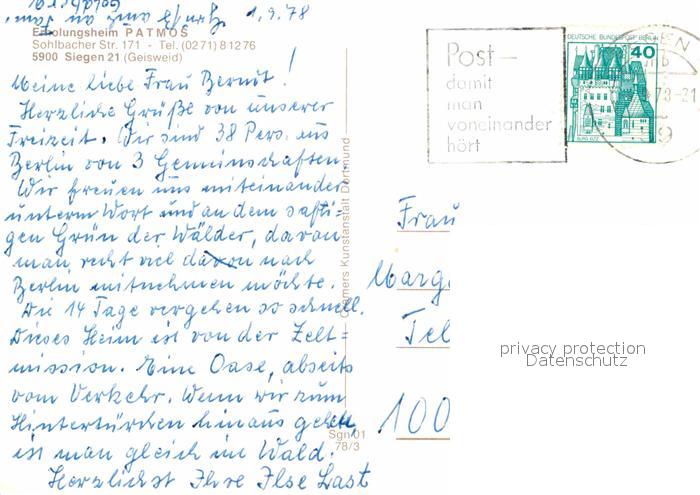 1.9.78
Erholungsheim PATMOS
Sohlbacher Str. 171 - Tel. (0271) 81276
5900 Siegen 21 (Geisweid)
Meine liebe Frau Berndt!
Herzliche Grüße von unserer
Freizeit. Wir sind 38 Pers. aus
Berlin von 3 Gemeinschaften
Wir freuen uns miteinander
unterm Wort und an dem safti=
gen Grün der Wälder, davon
man recht viel davon nach
Berlin mitnehmen möchte.
Die 14 Tage vergehen so schnell.
Dieses Heim ist von der Zelt=
mission. Eine Oase, abseits
vom Verkehr. Wenn wir zum
Hintertürchen hinaus gehen,
ist man gleich im Wald.
Herzlichst Ihre Ilse Last
Cramers Kunstanstalt Dortmund
Sgn 01
78/3
Post-
damit
man
voneinander
hört
DEUTSCHE BUNDESPOST BERLIN
40
BURG ELTZ
Frau
Marg
Tel
100
privacy protection
Datenschutz